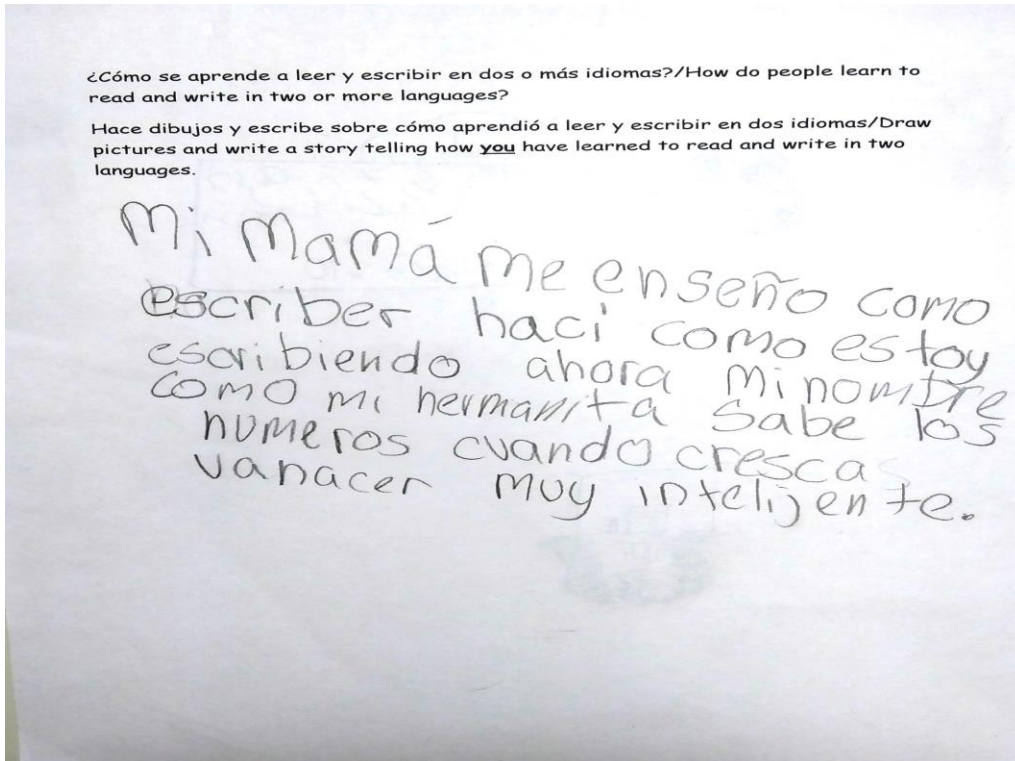 ¿Cómo se aprende a leer y escribir en dos o más idiomas?/How do people learn to
read and write in two or more languages?
Hace dibujos y escribe sobre cómo aprendió a leer y escribir en dos idiomas/Draw
pictures and write a story telling how you have learned to read and write in two
languages.
Mi Mamá me enseño como
escriber haci como estoy
escribiendo ahora mi nombre
como mi hermanita sabe los
numeros cuando cresca
vanacer muy intelijente.